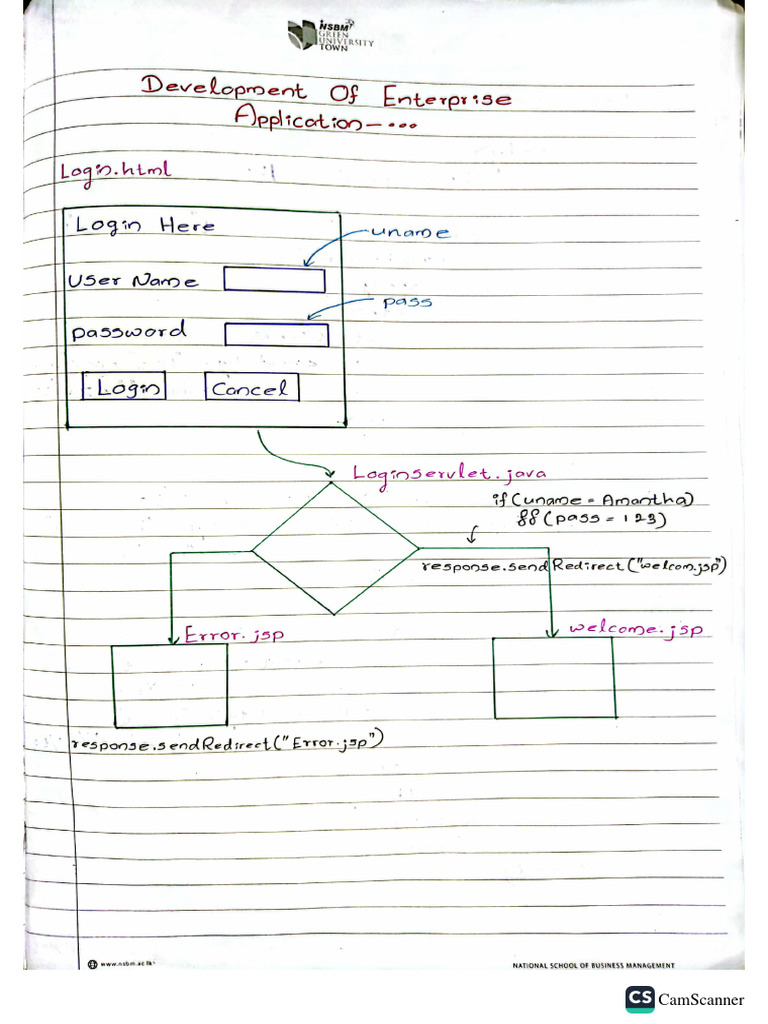 NSBM
GREEN
UNIVERSITY
TOWN
Development Of Enterprise
Application-...
Login.html
Login Here
uname
User Name
pass
password
Login
Cancel
Loginservlet.java
if(uname = Amantha)
&&(pass = 123)
response.sendRedirect("welcom.jsp")
Error.jsp
welcome.jsp
response.sendRedirect("Error.jsp")
www.nsbm.ac.lk
NATIONAL SCHOOL OF BUSINESS MANAGEMENT
CS CamScanner